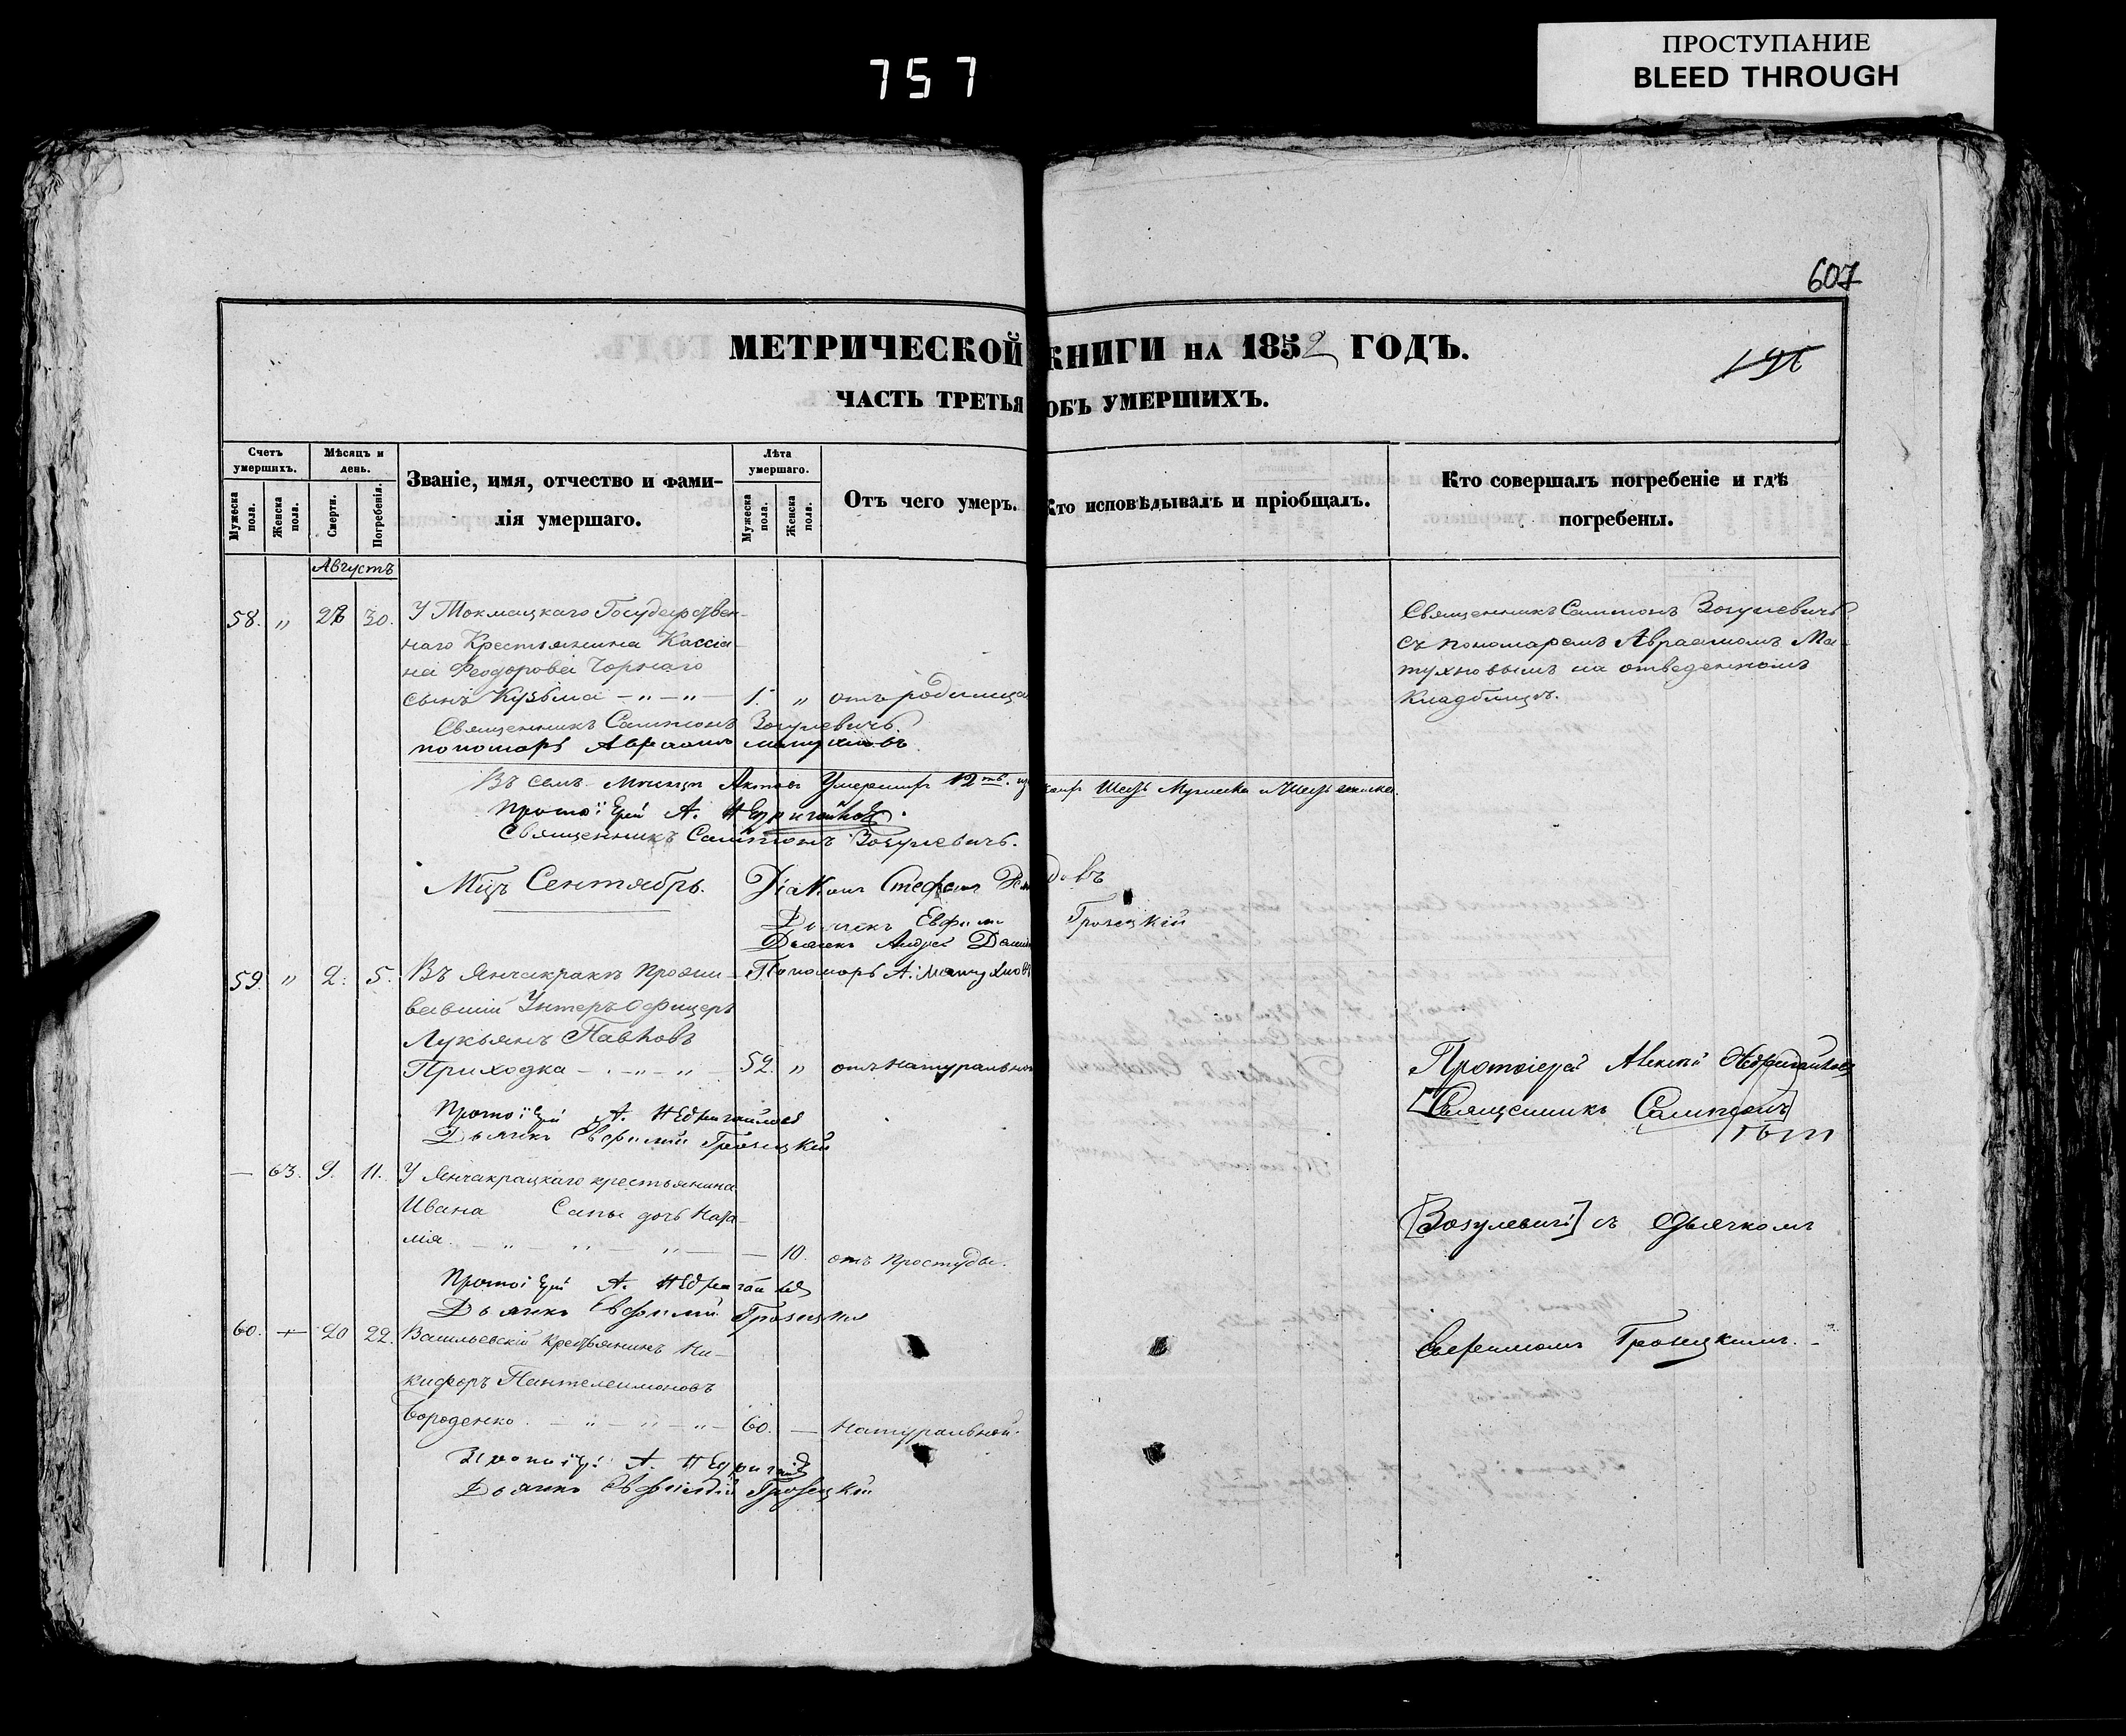 757
ПРОСТУПАНИЕ
BLEED THROUGH
607
МЕТРИЧЕСКОЙ КНИГИ НА 1852 ГОДЪ.
ЧАСТЬ ТРЕТЬЯ ОБЪ УМЕРШИХЪ.
Счетъ умершихъ.
Мужеска пола.
Женска пола.
Мѣсяцъ и день.
Смерти.
Погребенія.
Званіе, имя, отчество и фами-
лія умершаго.
Лѣта умершаго.
Мужеска пола.
Женска пола.
Отъ чего умеръ.
Кто исповѣдывалъ и пріобщалъ.
Кто совершалъ погребеніе и гдѣ
погребены.
Августъ
58. „ 30. У Токмацкаго Государствен-
наго Крестьянина Кассіа-
на Феодорова Чорнаго
сынъ Кузьма — „ — „ — 1. „ отъ родимца
Священникъ Сампсонъ Возулевичъ
съ пономаремъ Авраамомъ Ма-
тухновымъ на отведенномъ
кладбищѣ.
Священникъ Сампсонъ Возулевичъ
пономарь Авраамъ Матухновъ
Въ семъ Мѣсяцѣ Умершихъ 12ть.
Протоіерей А. Недригайловъ.
Священникъ Сампсонъ Возулевичъ.
Мцъ Сентябрь.
Діаконъ Стефанъ
Дьячекъ Евфимій Грозецкій
Дьячекъ Андрей
Пономарь А. Матухновъ
59. „ 2. 5. Въ Янчакракѣ прожи-
вавшій Унтеръ Офицеръ
Лукьянъ Павловъ
Приходка — . — „ — „ — 52. „ отъ натуральной
Протоіерей А. Недригайловъ
Дьячекъ Евфимій Грозецкій
Протоіерей Алексій Недригайловъ
[Священникъ Сампсонъ]
— 63. 9. 11. У Янчакрацкаго крестьянина
Ивана Сапы дочь
мія. — „ — „ — „ — — 10. отъ простуды.
Протоіерей А. Недригайловъ
Дьячекъ Евфимій Грозецкій
[Возулевичъ] съ дьячкомъ
60. — 20 22. Васильевскій Крестьянинъ Ни-
кифоръ Пантелеимоновъ
Бороденко. — „ — „ — „ — 60. — Натуральной.
Протоіерей А. Недригайловъ
Дьячекъ Евфимій Грозецкій
Евфиміомъ Грозецкимъ. —